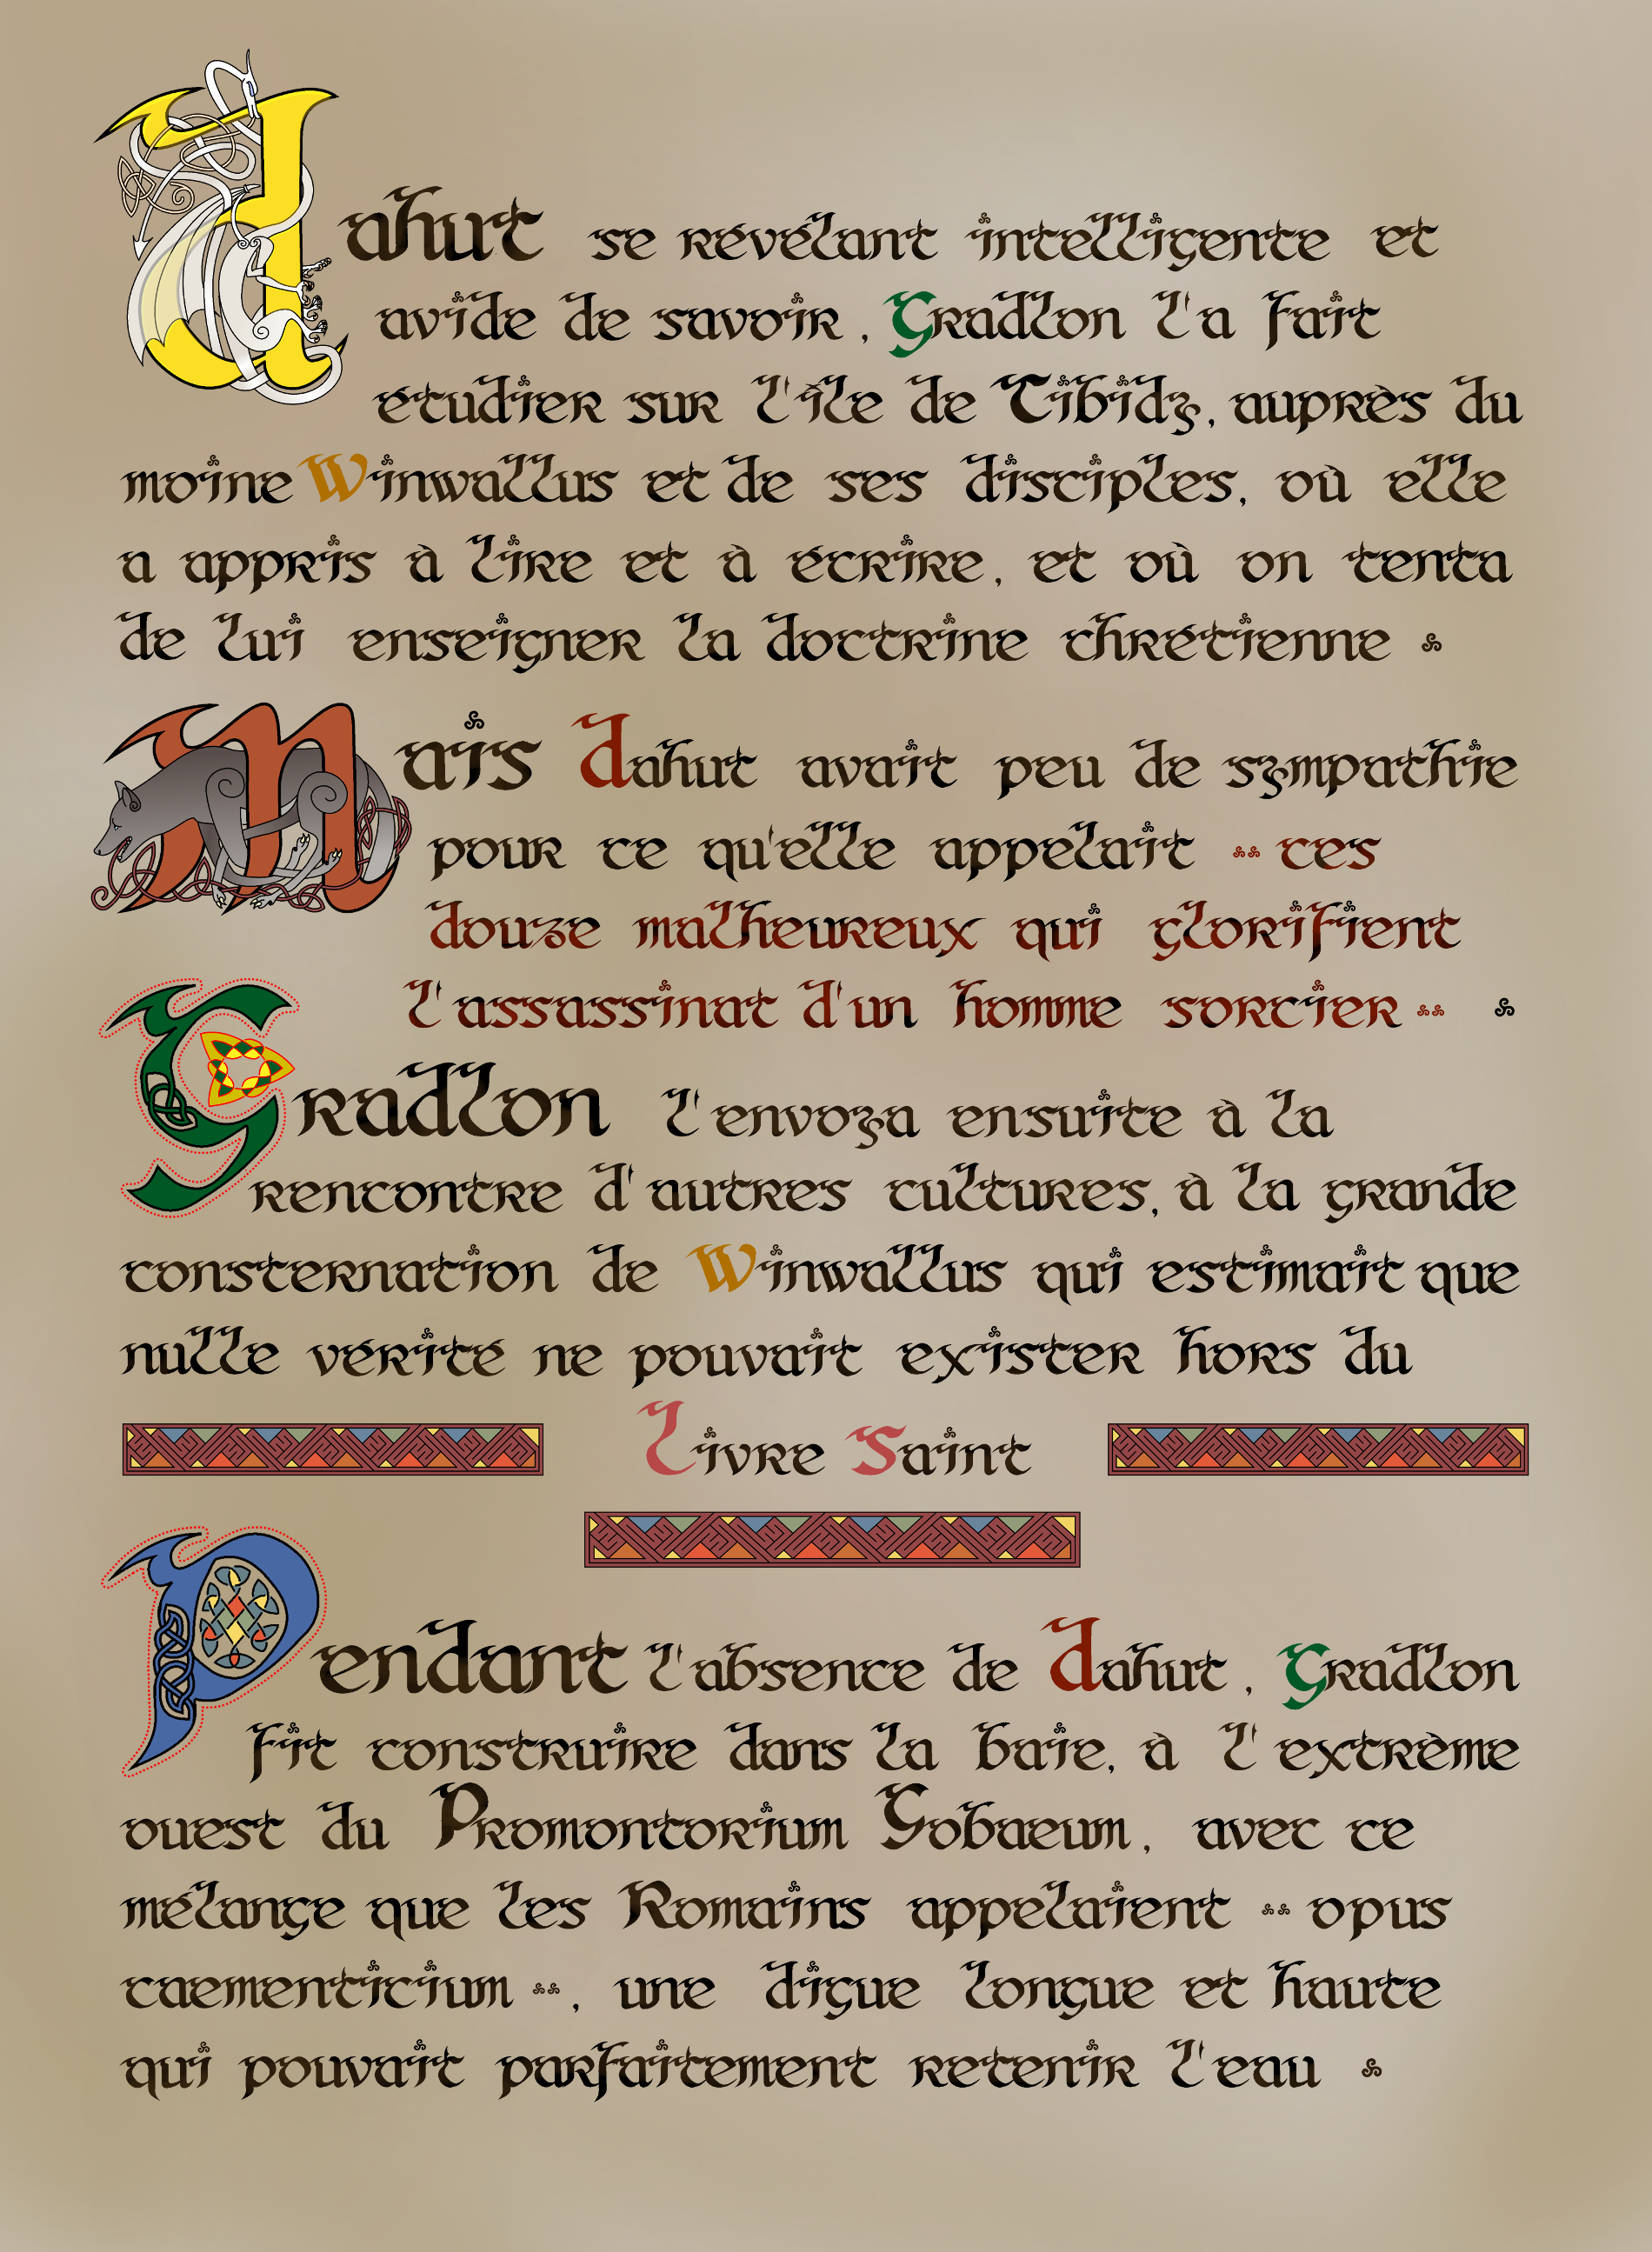 Dahut se révélant intelligente et
avide de savoir, Gradlon l'a fait
étudier sur l'île de Tibidy, auprès du
moine Winwallus et de ses disciples, où elle
a appris à lire et à écrire, et où on tenta
de lui enseigner la doctrine chrétienne
Mais Dahut avait peu de sympathie
pour ce qu'elle appelait ces
douze malheureux qui glorifient
l'assassinat d'un homme sorcier
Gradlon l'envoya ensuite à la
rencontre d'autres cultures, à la grande
consternation de Winwallus qui estimait que
nulle vérité ne pouvait exister hors du
Livre Saint
Pendant l'absence de Dahut, Gradlon
fit construire dans la baie, à l'extrème
ouest du Promontorium Gobaeum, avec ce
mélange que les Romains appelaient opus
caementicium, une digue longue et haute
qui pouvait parfaitement retenir l'eau